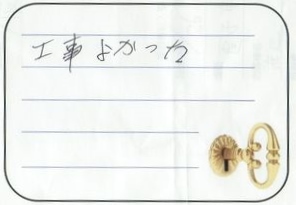 工事よかったね